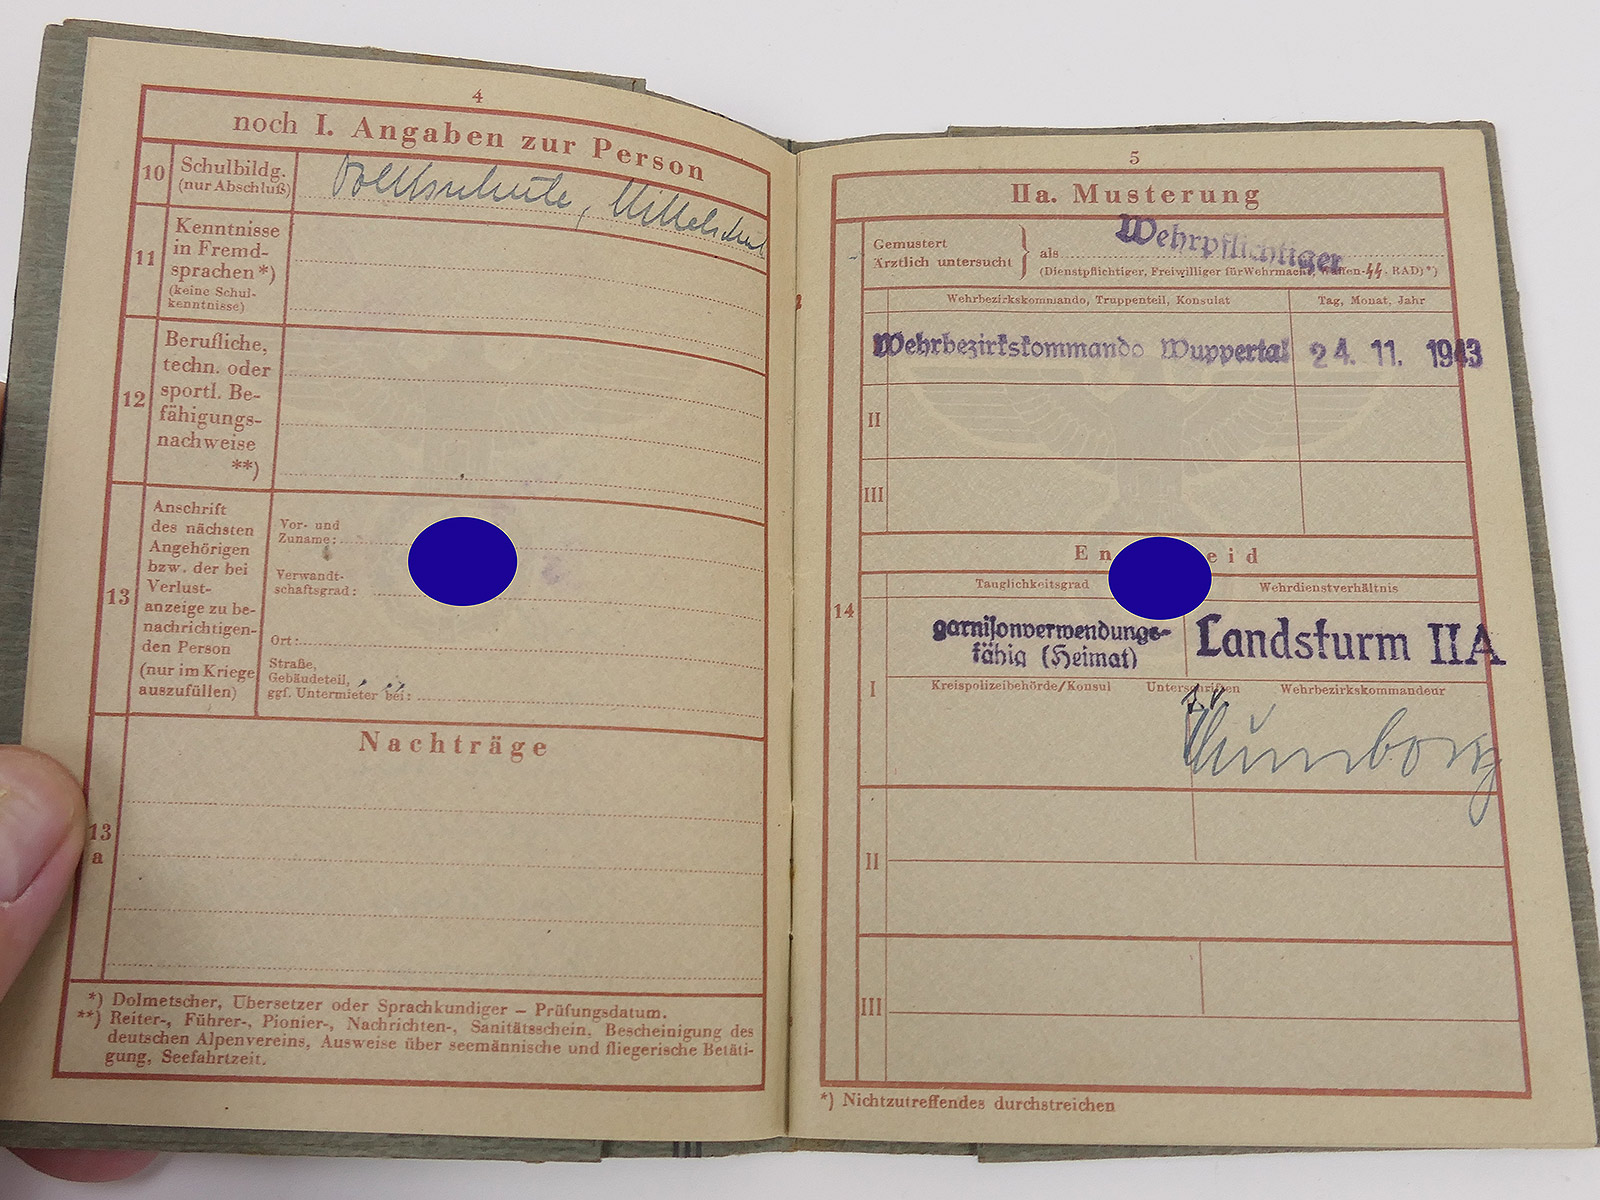 4
noch I. Angaben zur Person
10
Schulbildg.
(nur Abschluß)
Volksschule, Mittelschul
11
Kenntnisse
in Fremd-
sprachen *)
(keine Schul-
kenntnisse)
12
Berufliche,
techn. oder
sportl. Be-
fähigungs-
nachweise
**)
13
Anschrift
des nächsten
Angehörigen
bzw. der bei
Verlust-
anzeige zu be-
nachrichtigen-
den Person
(nur im Kriege
auszufüllen)
Vor- und
Zuname:
Verwandt-
schaftsgrad:
Ort:
Straße,
Gebäudeteil,
ggf. Untermieter bei:
13
a
Nachträge
*) Dolmetscher, Übersetzer oder Sprachkundiger – Prüfungsdatum.
**) Reiter-, Führer-, Pionier-, Nachrichten-, Sanitätsschein, Bescheinigung des
deutschen Alpenvereins, Ausweise über seemännische und fliegerische Betäti-
gung, Seefahrtzeit.
5
IIa. Musterung
Gemustert
Ärztlich untersucht
als
Wehrpflichtiger
(Dienstpflichtiger, Freiwilliger für Wehrmacht, Waffen-SS, RAD) *)
Wehrbezirkskommando, Truppenteil, Konsulat
Tag, Monat, Jahr
Wehrbezirkskommando Wuppertal
24. 11. 1943
II
III
En eid
14
Tauglichkeitsgrad
Wehrdienstverhältnis
garnisonverwendungs-
fähig (Heimat)
Landsturm IIA
I
Kreispolizeibehörde/Konsul
Unterschriften
Wehrbezirkskommandeur
II
III
*) Nichtzutreffendes durchstreichen